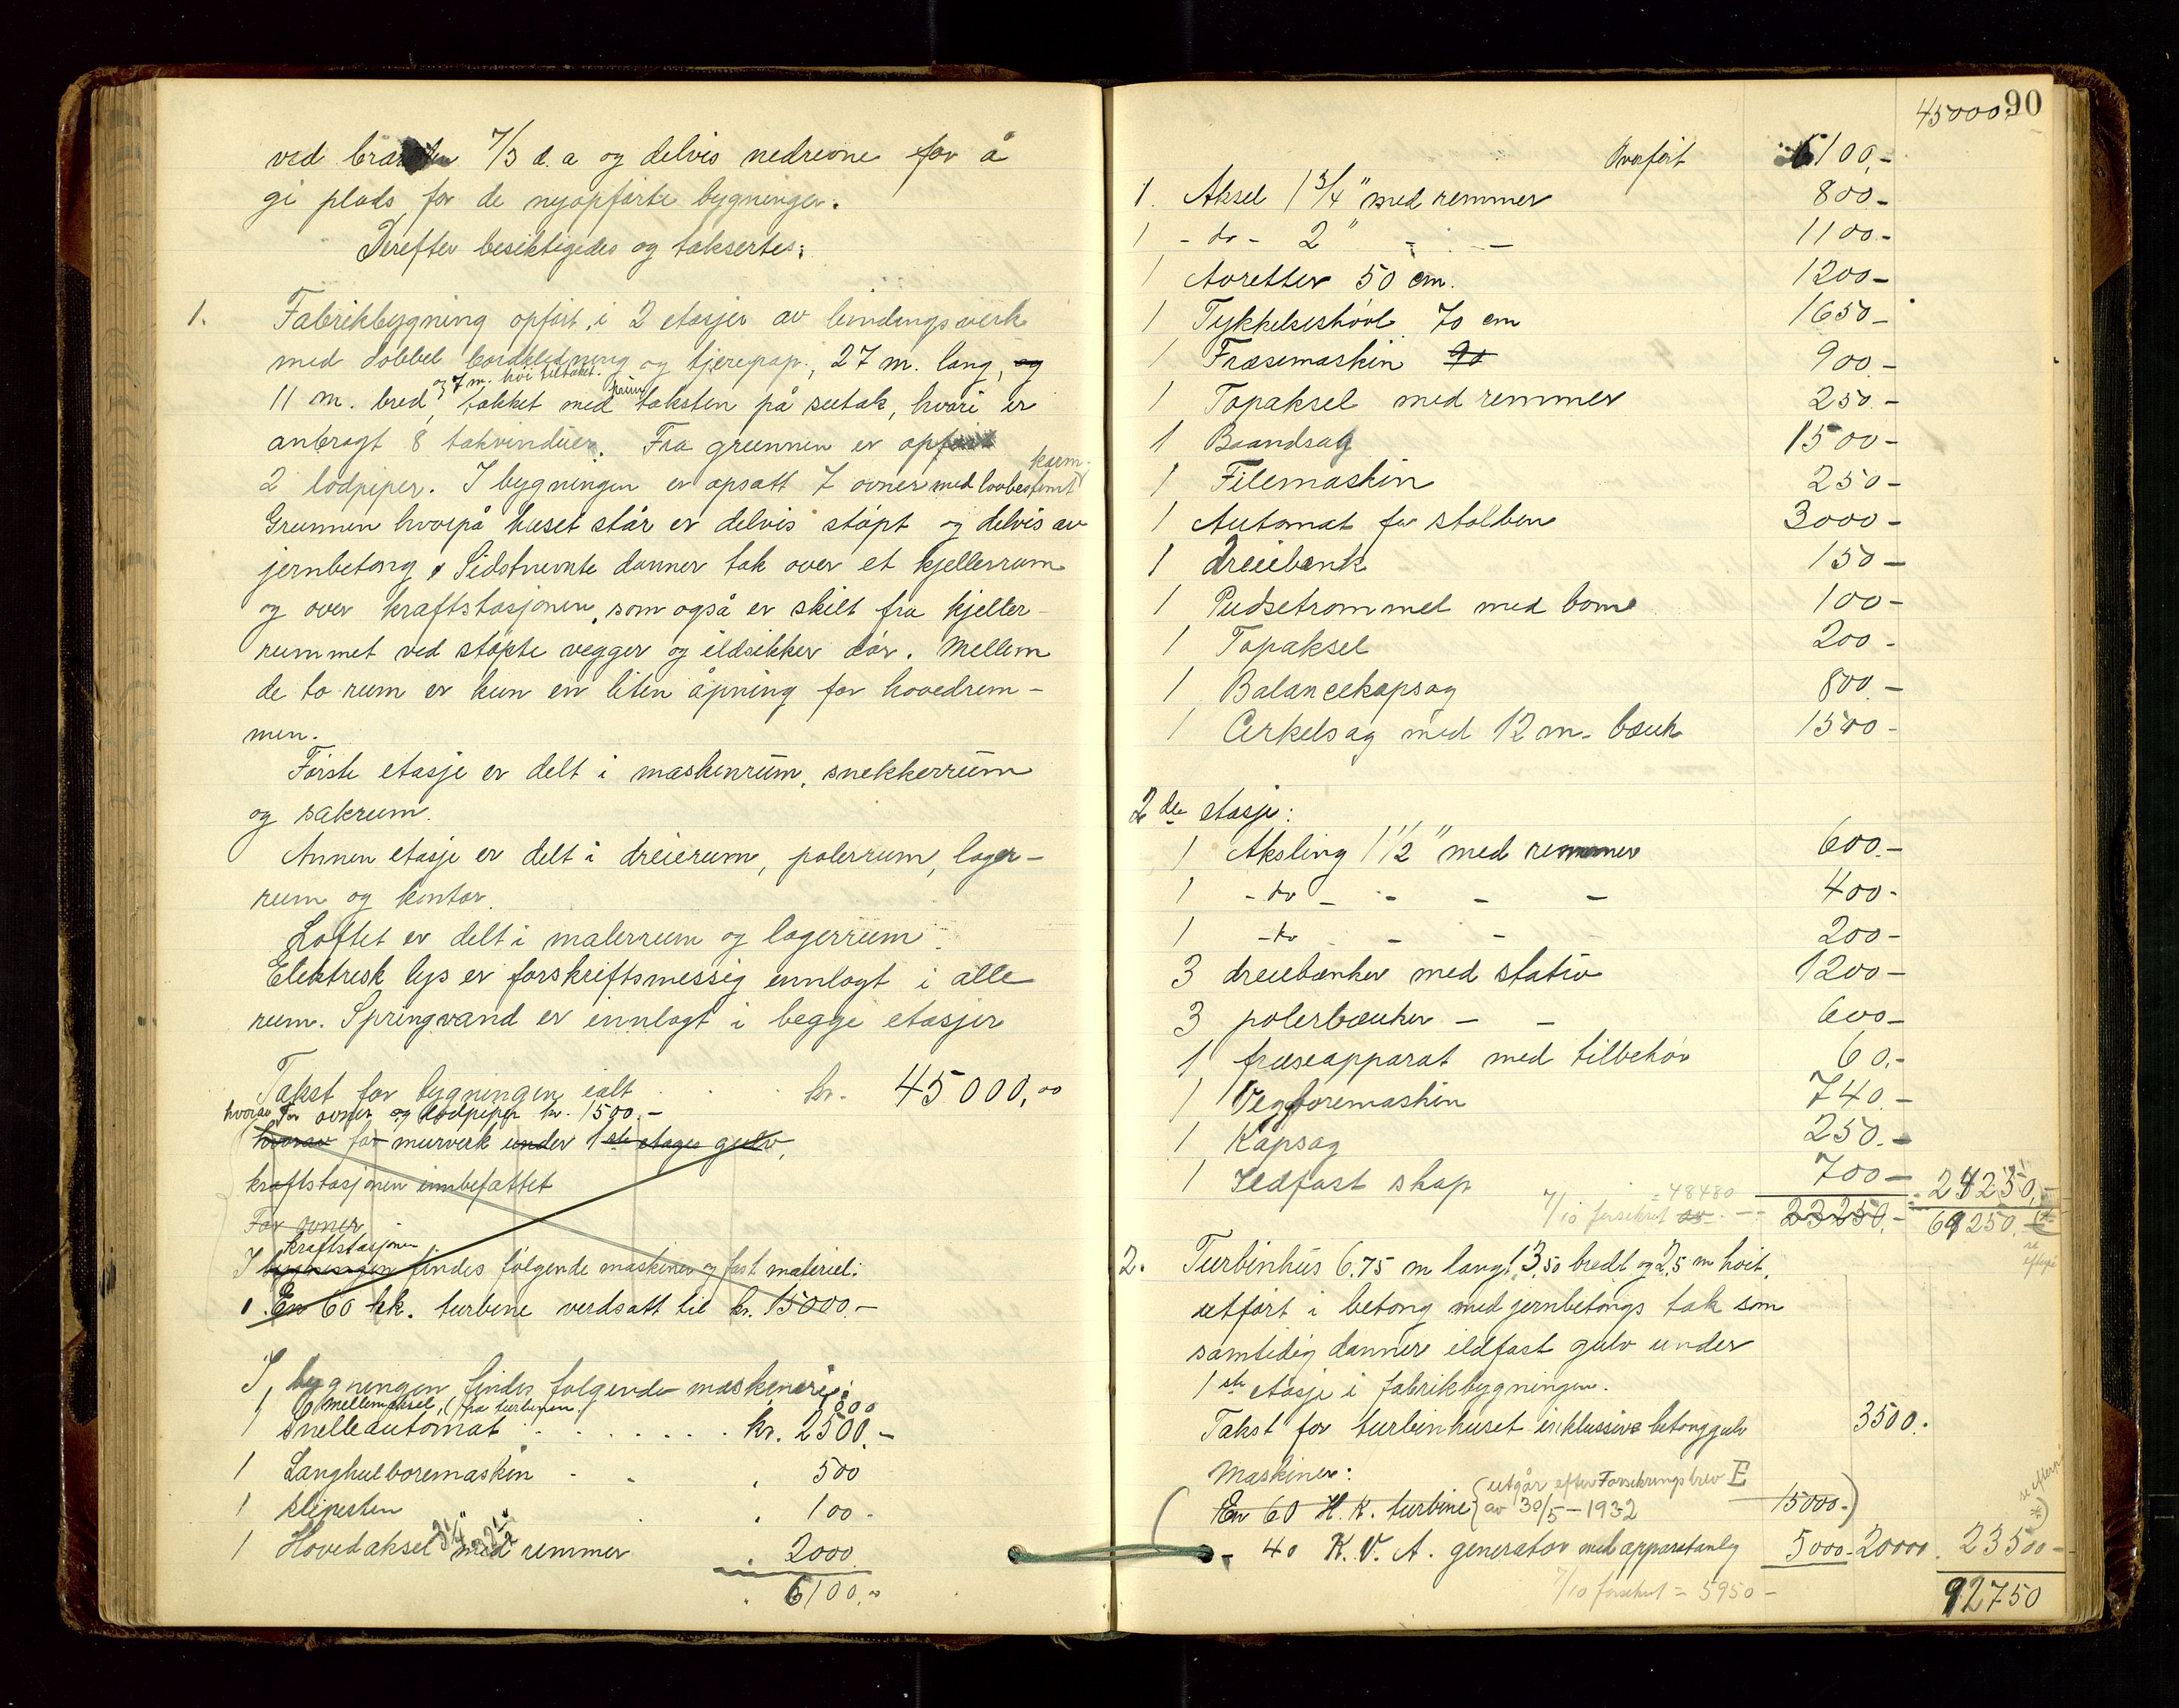 ved branden 7/3 d. a og delvis nedrevne for å
gi plads for de nyopførte bygninger.
Derefter besiktigedes og taksertes:
1. Fabrikbygning opført i 2 etasjer av bindingsverk
med dobbel bordkledning og tjærepap, 27 m. lang, og
og 7 m. høi tiltaket.
11 m. bred, tækket med taksten på sutak, hvori er
anbragt 8 takvinduer. Fra grunnen er opført
2 lodpiper. I bygningen er opsatt 7 ovner med lovbestemt
Grunnen hvorpå huset står er delvis støpt og delvis av
jernbetong. Sidstnevnte danner tak over et kjellerrum
og over kraftstasjonen, som også er skilt fra kjeller-
rummet ved støpte vegger og ildsikker dør. Mellem
de to rum er kun en liten åpning for hovedrem-
men.
Første etasje er delt i maskinrum, snekkerrum
og sakrum.
Annen etasje er delt i dreierum, polerrum, lager-
rum og kontor.
Loftet er delt i malerrum og lagerrum.
Elektrisk lys er forskriftsmessig innlagt i alle
rum. Springvand er innlagt i begge etasjer
Takst for bygningen ialt . . . kr. 45000,00
hvorav for ovner og lodpiper kr. 1500,-
hvorav for murverk under 1ste etages gulv,
kraftstasjonen innbefattet
For ovner
kraftstasjonen
I bygningen findes følgende maskiner og fast materiel:
1. En 60 hk. turbine verdsatt til kr. 15000.-
I bygningen findes følgende maskineri:
1 Mellemaksel, (fra turbinen. 1000
1 Snelleautomat . . . . . . . kr. 2500.-
1 Langhulboremaskin - - . 500
1 slipesten . . 100.-
1 Hovedaksel med remmer . 2000
6100.00
90
45000.
Overført 6100,-
1. Aksel 1 3/4" med remmer 800-
1 - do - 2" - - 1100.-
1 Avretter 50 cm. 1200-
1 Tykkelseshøvl 70 cm 1650-
1 Fræsemaskin 90 900.-
1 Topaksel med remmer 250.-
1 Baandsag 1500-
1 Filemaskin 250-
1 Automat for stolben 3000-
1 dreiebænk 150-
1 Pudsetrommel med bom 100-
1 Topaksel 200-
1 Balancekapsag 800.-
1 Cirkelsag med 12 m. bænk 1500-
2den etasje:
1 Aksling 1 1/2" med remmer 600.-
1 - do - - - - 400.-
1 - do - - 200-
3 dreiebænker med stativ 1200-
3 polerbænker - - 600-
1 fræseapparat med tilbehør 60.-
1 Vegboremaskin 740.-
1 Kapsag 250.-
1 Ildfast skap 700- 24250,-
7/10 forsikret av = 48480 23250,- 69250.
2. Turbinhus 6.75 m langt, 3,50 bredt og 2,5 m høit,
utført i betong med jernbetongs tak som
samtidig danner ildfast gulv under
1ste etasje i fabrikbygningen.
Takst for turbinhuset inklusive betonggulv 3500.
Maskiner:
(utgår efter Forsikringsbrev E
En 60 H.K. turbine av 30/5-1932 15000.-)
- 40 K.V.A. generator med apparatanleg 5000- 20000. 23500-
7/10 forsikret = 5950- 92750